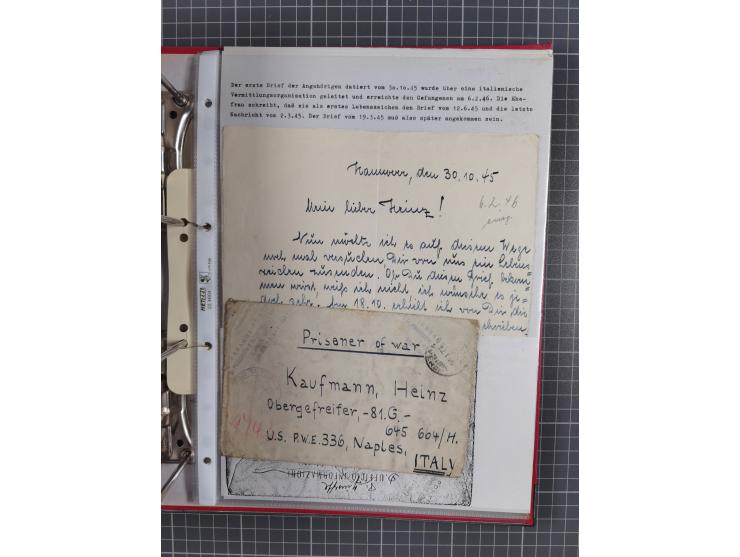 Der erste Brief der Angehörigen datiert vom 30.10.45 wurde über eine italienische
Vermittlungsorganisation geleitet und erreichte den Gefangenen am 6.2.46. Die Ehe-
frau schreibt, daß sie als erstes Lebenszeichen den Brief vom 12.6.45 und die letzte
Nachricht vom 2.3.45. Der Brief vom 19.3.45 muß also später angekommen sein.
Hannover, den 30.10.45
6.2.46
Mein lieber Heinz!
Nun möchte ich es auf diesem Wege
noch mal versuchen Dir von uns ein Lebens-
zeichen zusenden. Ob Du diesen Brief bekom-
men wirst, weiß ich nicht ich wünsche es je-
doch sehr. Am 18.10. erhielt ich von Dir die
schreiben.
Prisoner of war
Kaufmann, Heinz
Obergefreiter, -81.G.-
645 604/H.
U.S. P.W.E. 336, Naples,
ITALY
UFFICIO INFORMAZIONI